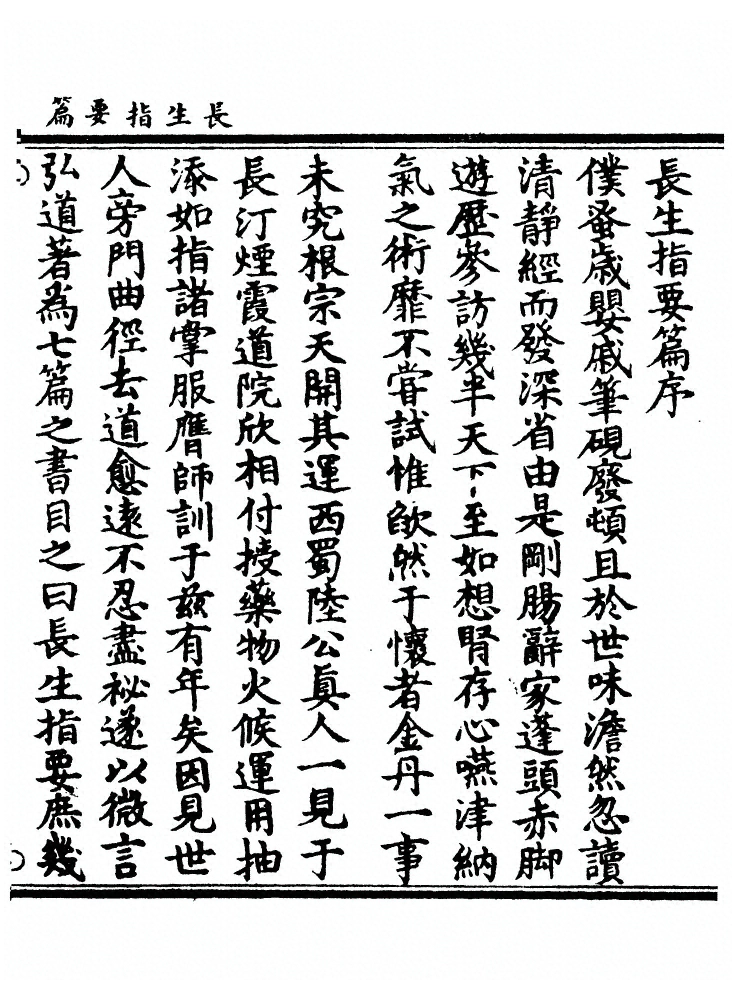 長生指要篇
長生指要篇序
僕蚤歲嬰戚筆硯廢頓且於世味澹然忽讀
清靜經而發深省由是剛腸辭家蓬頭赤脚
遊歷參訪幾半天下至如想腎存心嚥津納
氣之術靡不嘗試惟歉然于懷者金丹一事
未究根宗天開其運西蜀陸公眞人一見于
長汀煙霞道院欣相付授藥物火候運用抽
添如指諸掌服膺師訓于兹有年矣因見世
人旁門曲徑去道愈遠不忍盡祕遂以微言
弘道著為七篇之書目之曰長生指要庶幾